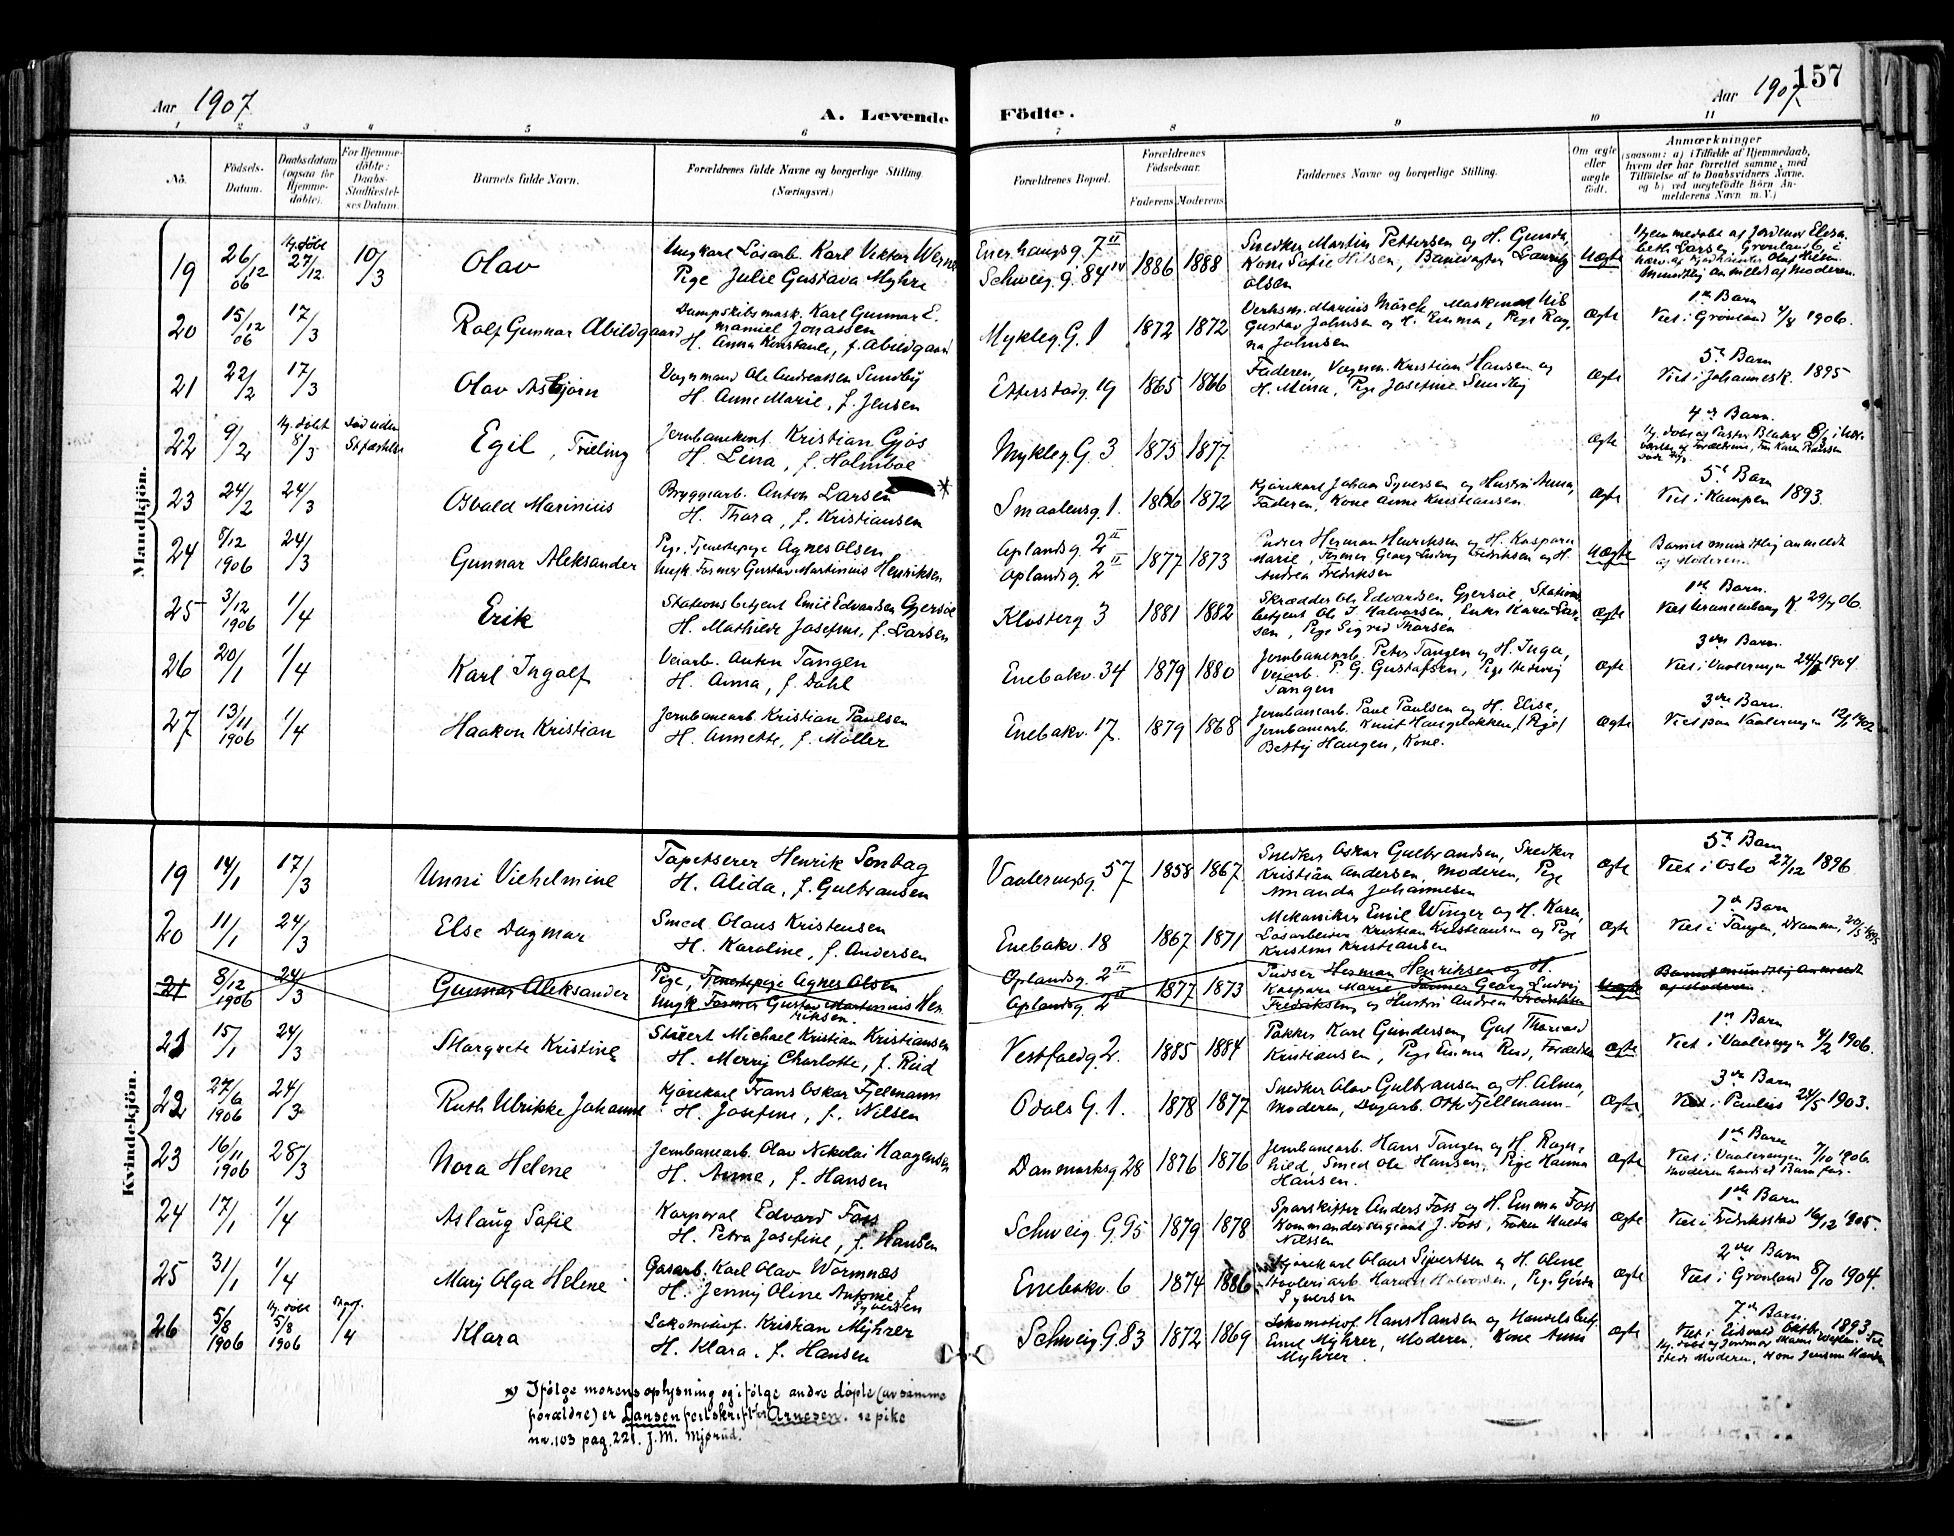 157
Aar 1907
A. Levende Födte.
Aar 1907
1 2 3 4 5 6 7 8 9 10 11
No. Födsels-Datum. Daabsdatum (ogsaa for Hjemme-döbte). For Hjemme-döbte: Daabs-Stadfæstel-ses Datum. Barnets fulde Navn. Forældrenes fulde Navne og borgerlige Stilling. (Næringsvei) Forældrenes Bopæl. Forældrenes Födselsaar. Faderens. Moderens. Faddernes Navne og borgerlige Stilling. Om ægte eller uægte födt. Anmærkninger (saasom: a) i Tilfælde af Hjemmedaab, hvem der har forrettet samme, med Tilföielse af to Daabsvidners Navne, og b) ved uægtefödte Börn An-melderens Navn m. V.)
Mandkjön.
19 26/12 06 Hj. döbt 27/12 10/3 Olav
Ungkarl Løsarb. Karl Viktor Werne
Pige Julie Gustava Myhre
Enerhaugsg. 7 II
Schweig. G. 84 IV
1886 1888
Snedker Martin Pettersen og H. Gunda
Kone Sofie Nilsen, Banevogter Lauritz
Olsen
Uægte
Mundtlig anmeldt af Moderen.
20 15/12 06 17/3 Rolf Gunnar Abildgaard
Dampskibsmask. Karl Gunnar E.
manuel Jonassen
H. Anna Konstance, f. Abildgaard
Mykleg. G. 1
1872 1872
Verksm. Marius Mørch, Maskinist
Gustav Johnsen og H. Emma, Pige Rag-
na Johnsen
Ægte
1ste Barn
Viet i Grønland 4/8 1906.
21 22/2 17/3 Olav Asbjørn
Vognmand Ole Andreassen Sundby
H. Anne Marie, f. Jensen
Etterstadg. 19
1865 1866
Faderen, Vognm. Kristian Hansen og
H. Mina, Pige Josefine Sundby
Ægte
5te Barn
Viet i Johannesk. 1895
22 9/2 Hj. döbt 8/3 Død uden Stadfæstelse Egil, Trilling
Jernbanekont. Kristian Gjøs
H. Lena, f. Holmboe
Mykleg G. 3
1875 1877
Ægte
4de Barn.
23 24/2 24/3 Osvald Marinius
Bryggearb. Anton Larsen *
H. Thora, f. Kristiansen
Smaalensg. 1.
1866 1872
Kjørekarl Johan Syversen og Hustru Anna,
Faderen, Kone Anne Kristiansen.
Ægte
5te Barn
Viet i Kampen 1893.
24 8/12 1906 24/3 Gunnar Aleksander
Pige, Tjenestepige Agnes Olsen
Ungk. Former Gustav Martinius Henriksen
Oplandsg. 2 II
Oplandsg. 2 II
1877 1873
Pudser Herman Henriksen og H. Kaspara
Marie, Former Georg Ludvig Fredriksen og H.
Andrea Fredriksen
Uægte
Barnet mundtlig anmeldt
af Moderen.
25 3/12 1906 1/4 Erik
Stationsbetjent Emil Edvardsen Gjersøe
H. Mathilde Josefine, f. Larsen
Klosterg 3
1881 1882
Skrædder Ole Edvardsen Gjersøe, Stations
betjent Ole J. Halvorsen, Enke Karen Lar-
sen, Pige Sigrid Thorsen
Ægte
1ste Barn.
Viet Uranienborg K. 29/7 06.
26 20/1 1/4 Karl Ingolf
Veiarb. Anton Tangen
H. Anna, f. Dahl
Enebakv. 34
1879 1880
Jernbanearb. Peter Tangen og H. Inga,
Veiarb. P. G. Gustafsen, Pige Hedvig
Tangen
Ægte
3die Barn.
Viet i Vaalerengen 1904
27 13/11 1906 1/4 Haakon Kristian
Jernbanearb. Kristian Paulsen
H. Annette, f. Møller
Enebakv. 17.
1879 1868
Jernbanearb. Paul Paulsen og H. Elise,
Jernbanearb. Knut Haugeløkken, (Pige)
Betty Haugen, Kone.
Ægte
3die Barn.
Viet paa Vaalerengen 1902
Kvindekjön.
19 14/1 17/3 Unni Vilhelmine
Tapetserer Henrik Sontag
H. Alida, f. Gulbransen
Vaalerengsg. 57
1858 1867
Snedker Oskar Gulbrandsen, Snedker
Kristian Andersen, Moderen, Pige
Amanda Johannesen
Ægte
5te Barn
Viet i Oslo 27/12 1896
20 11/1 24/3 Else Dagmar
Smed Olaus Kristensen
H. Karoline, f. Andersen
Enebakv. 18
1867 1871
Mekaniker Emil Winger og H. Karen,
Løsarbeider Kristian Kristiansen og Pige
Kristine Kristiansen
Ægte
7de Barn
Viet i Tangen, Drammen, 20/5 1895
21 8/12 1906 24/3 Gunnar Aleksander
Pige, Tjenestepige Agnes Olsen
Ungk. Former Gustav Martinius Hen
riksen.
Oplandsg. 2 II
Oplandsg. 2 II
1877 1873
Pudser Herman Henriksen og H.
Kaspara Marie Former Georg Ludvig
Fredriksen og Hustru Andrea Fredriksen
Uægte
Barnet mundtlig anmeldt
af Moderen
21 15/1 24/3 Margrete Kristine
Stuert Michael Kristian Kristiansen
H. Merry Charlotte, f. Rud
Vestfoldg 2.
1885 1884
Pakker Karl Gundersen, Gut Thorvald
Kristiansen, Pige Emma Rud, Forældrene
Ægte
1ste Barn
Viet i Vaalerengen 4/2 1906.
22 27/6 1906 24/3 Ruth Ulrikke Johanne
Kjørekarl Frans Oskar Fjellmann
H. Josefine, f. Nilsen
Odals G. 1.
1878 1877
Snedker Olav Gulbransen og H. Alma,
Moderen, Dagarb. Otto Fjellmann
Ægte
3die Barn
Viet i Paulus 24/5 1903.
23 16/11 1906 28/3 Nora Helene
Jernbanearb. Olav Nikolai Haagensen
H. Anne, f. Hansen
Danmarksg 28
1876 1876
Jernbanearb. Hans Tangen og H. Ragn-
hild, Smed Ole Hansen, Pige Hanna
Hansen.
Ægte
1ste Barn
Viet i Vaalerengen 7/10 1906.
Moderen havde et Barn før.
24 17/1 1/4 Aslaug Sofie
Korporal Edvard Foss
H. Petra Josefine, f. Hansen
Schweig. G. 95
1879 1878
Sporskifter Anders Foss og H. Emma Foss
Kommandersergeant J. Foss, Frøken Hulda
Nilssen
Ægte
1ste Barn
Viet i Fredriksstad 16/12 1905
25 31/1 1/4 Mary Olga Helene
Gasarb. Karl Olav Wormnæs
H. Jenny Oline Antonie, f.
Syversen
Enebakv. 6
1874 1886
Kjørekarl Olaus Sivertsen og H. Oline
Halvorsen, Pige Gerda
Syversen
Ægte
2det Barn
Viet i Grønland 8/10 1904.
26 5/8 1906 Hj. döbt 5/8 1906 1/4 Klara
Lokomotivf. Kristian Myhrer
H. Klara, f. Hansen
Schweig G. 83
1872 1869
Lokomotivf. Hans Hansen og Handelsbetj.
Emil Myhrer, Moderen, Kone Anne
Myhrer.
Ægte
7de Barn.
Viet i Eidsvold Oktbr. 1893
*) Ifølge morens oplysning og ifølge andre døpte (av samme
forældre) er Larsen feilskrift for Arnesen. se pike
nr. 103 pag. 221. J. M. Mjørud.